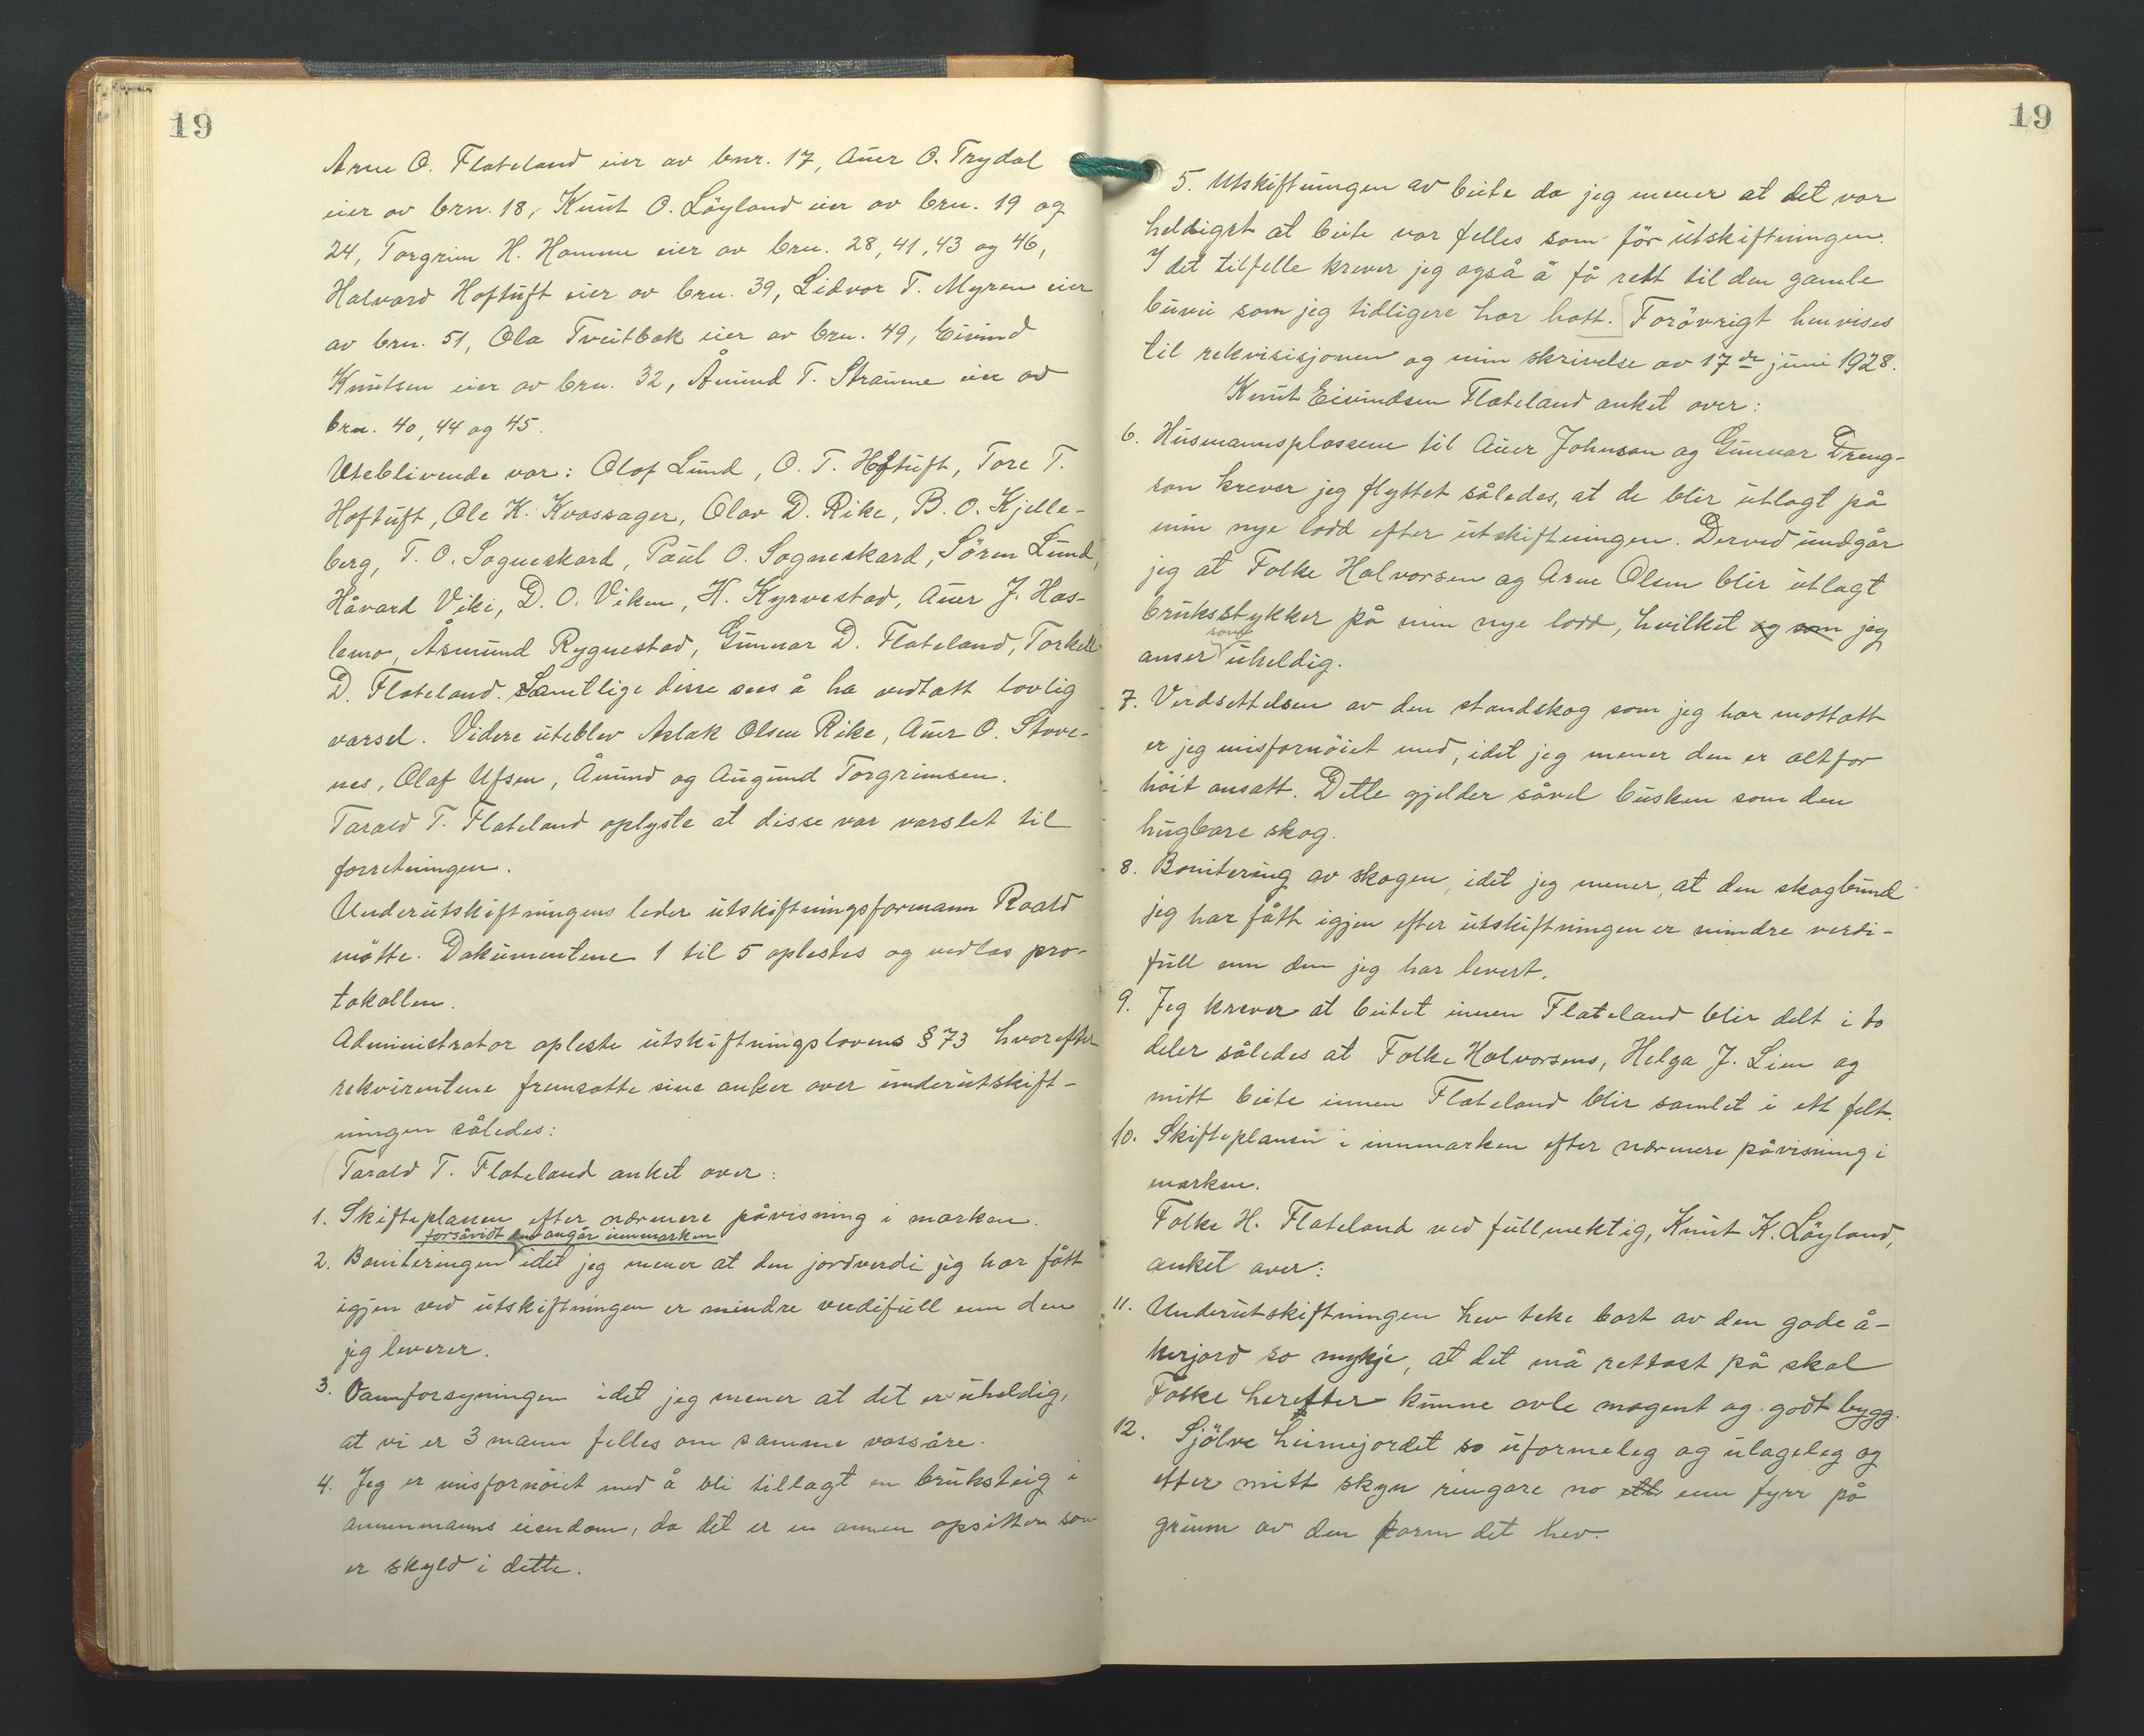 19
Arne O. Flateland eier av bnr. 17, Auer O. Trydal
eier av brn. 18, Knut O. Löyland eier av brn. 19 og
24, Torgrim H. Homme eier av brn. 28, 41, 43 og 46,
Halvard Hoftuft eier av brn. 39, Lidvor T. Myren eier
av brn. 51, Ola Tveitbak eier av brn. 49, Eivind
Knutsen eier av brn. 32, Ånund T. Straume eier av
brn. 40, 44 og 45.
Uteblivende var: Olaf Lund, O. T. Hoftuft, Tore T.
Hoftuft, Ole K. Kvassager, Olav D. Rike, B. O. Kjelle-
berg, T. O. Sagneskard, Paul O. Sagneskard, Sören Lund,
Håvard Viki, D. O. Viken, H. Kyrvestad, Auer J. Has-
lemo, Åsmund Rygnestad, Gunnar D. Flateland, Torkell
D. Flateland. Samtlige disse sees å ha vedtatt lovlig
varsel. Videre uteblev Aslak Olsen Rike, Auer O. Stave-
nes, Olaf Ufsen, Ånund og Augund Torgrimsen.
Tarald T. Flateland oplyste at disse var varslet til
forretningen.
Underutskiftningens leder utskiftningsformann Roald
møtte. Dokumentene 1 til 5 oplestes og vedlas pro-
tokollen.
Administrator opleste utskiftningslovens § 73 hvorefter
rekvirentene fremsatte sine anker over underutskift-
ningen således:
Tarald T. Flateland anket over:
1. Skifteplanen efter nærmere påvisning i marken.
forsåvidt den angår innmarken
2. Boniteringen idet jeg mener at den jordverdi jeg har fått
igjen ved utskiftningen er mindre verdifull enn den
jeg leverer.
3. Vannforsyningen idet jeg mener at det er uheldig,
at vi er 3 mann felles om samme vassåre.
4. Jeg er misfornöiet med å bli tillagt en bruksteig i
annenmanns eiendom, da det er en annen opsitter som
er skyld i dette.
19
5. Utskiftningen av beite da jeg mener at det var
heldigst at beite var felles som för utskiftningen.
I det tilfelle krever jeg også å få rett til den gamle
buvei som jeg tidligere har hatt. Forövrigt henvises
til rekvisisjonen og min skrivelse av 17de juni 1928.
Knut Eivindsen Flateland anket over:
6. Husmannsplassene til Auer Johnson og Gunnar Dreng-
son krever jeg flyttet således, at de blir utlagt på
min nye lodd efter utskiftningen. Derved undgår
jeg at Folke Halvorsen og Arne Olsen blir utlagt
bruksstykker på min nye lodd, hvilket og som jeg
som
anser uheldig.
7. Verdsettelsen av den standskog som jeg har mottatt
er jeg misfornöiet med, idet jeg mener den er altfor
höit ansatt. Dette gjelder såvel busken som den
hugbare skog.
8. Bonitering av skogen, idet jeg mener, at den skogbund
jeg har fått igjen efter utskiftningen er mindre verdi-
full enn den jeg har levert.
9. Jeg krever at beitet innen Flateland blir delt i to
deler således at Folke Halvorsens, Helga J. Lien og
mitt beite innen Flateland blir samlet i ett felt.
10. Skifteplanen i innmarken efter nærmere påvisning i
marken.
Folke H. Flateland ved fullmektig, Knut K. Löyland,
anket over:
11. Underutskiftningen hev teke bort av den gode å-
kerjord so mykje, at det må rettast på skal
Folke herefter kunne avle mogent og godt bygg.
12. Sjölve heimejordet so uformeleg og ulageleg og
etter mitt skyn ringare no ett enn fyrr på
grunn av den form det hev.